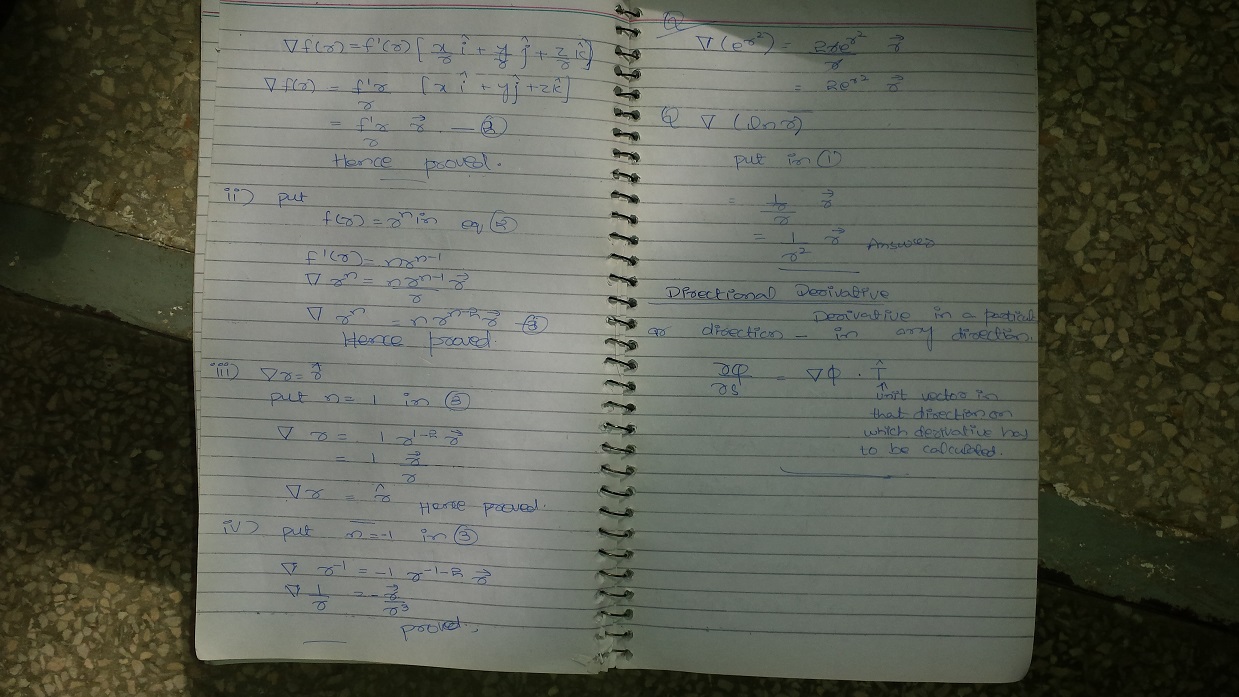 ∇f(r) = f'(r) [x/r î + y/r ĵ + z/r k̂]
∇f(r) = f'r/r [x î + yĵ + zk̂]
= f'r/r r⃗ — ②
Hence proved.
ii) put
f(r) = rⁿ in eq ②
f'(r) = nrⁿ⁻¹
∇ rⁿ = nrⁿ⁻¹/r r⃗
∇ rⁿ = n rⁿ⁻² r⃗ — ③
Hence proved.
iii) ∇r = r̂
put n = 1 in ③
∇ r = 1 r¹⁻² r⃗
= 1 r⃗/r
∇r = r̂ Hence proved.
iv) put n = -1 in ③
∇ r⁻¹ = -1 r⁻¹⁻² r⃗
∇ 1/r = - r⃗/r³
proved.
Q
∇(e^r²) = 2re^r²/r r⃗
= 2e^r² r⃗
Q ∇ (ln r)
put in ①
= 1/r/r r⃗
= 1/r² r⃗ Answer
Directional Derivative
Derivative in a particul
ar direction - in any direction.
∂φ/∂s = ∇φ · T̂
↑
unit vector in
that direction on
which derivative has
to be calculated.